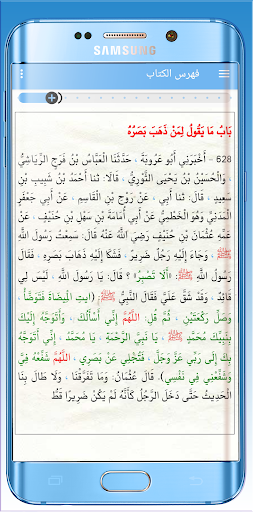 SAMSUNG
فهرس الكتاب
بَابُ مَا يَقُولُ لِمَنْ ذَهَبَ بَصَرُهُ
628 – أَخْبَرَنِي أَبُو عَرُوبَةَ ، حَدَّثَنَا الْعَبَّاسُ بْنُ فَرَجٍ الرِّيَاشِيُّ
، وَالْحُسَيْنُ بْنُ يَحْيَى الثَّوْرِيُّ ، قَالَا: ثنا أَحْمَدُ بْنُ شَبِيبِ بْنِ
سَعِيدٍ ، قَالَ: ثنا أَبِي ، عَنْ رَوْحِ بْنِ الْقَاسِمِ ، عَنْ أَبِي جَعْفَرٍ
الْمَدَنِيِّ وَهُوَ الْخَطْمِيُّ عَنْ أَبِي أُمَامَةَ بْنِ سَهْلِ بْنِ حُنَيْفٍ ، عَنْ
عَمِّهِ عُثْمَانَ بْنِ حُنَيْفٍ رَضِيَ اللَّهُ عَنْهُ قَالَ: سَمِعْتُ رَسُولَ اللَّهِ
ﷺ ، وَجَاءَ إِلَيْهِ رَجُلٌ ضَرِيرٌ ، فَشَكَا إِلَيْهِ ذَهَابَ بَصَرِهِ ، فَقَالَ
رَسُولُ اللَّهِ ﷺ: «أَلَا تَصْبِرُ» ؟ قَالَ: يَا رَسُولَ اللَّهِ ، لَيْسَ لِي
قَائِدٌ ، وَقَدْ شَقَّ عَلَيَّ فَقَالَ النَّبِيُّ ﷺ: (ائْتِ الْمِيضَاةَ فَتَوَضَّأْ ،
وَصَلِّ رَكْعَتَيْنِ ، ثُمَّ قُلِ: اللَّهُمَّ إِنِّي أَسْأَلُكَ ، وَأَتَوَجَّهُ إِلَيْكَ
بِنَبِيِّكَ مُحَمَّدٍ ﷺ ، يَا نَبِيَّ الرَّحْمَةِ ، يَا مُحَمَّدُ ، إِنِّي أَتَوَجَّهُ
بِكَ إِلَى رَبِّي عَزَّ وَجَلَّ ، فَتُجَلِّي عَنْ بَصَرِي ، اللَّهُمَّ شَفِّعْهُ فِيَّ
وَشَفِّعْنِي فِي نَفْسِي). قَالَ عُثْمَانُ: وَمَا تَفَرَّقْنَا ، وَلَا طَالَ بِنَا
الْحَدِيثُ حَتَّى دَخَلَ الرَّجُلُ كَأَنَّهُ لَمْ يَكُنْ ضَرِيرًا قَطُّ